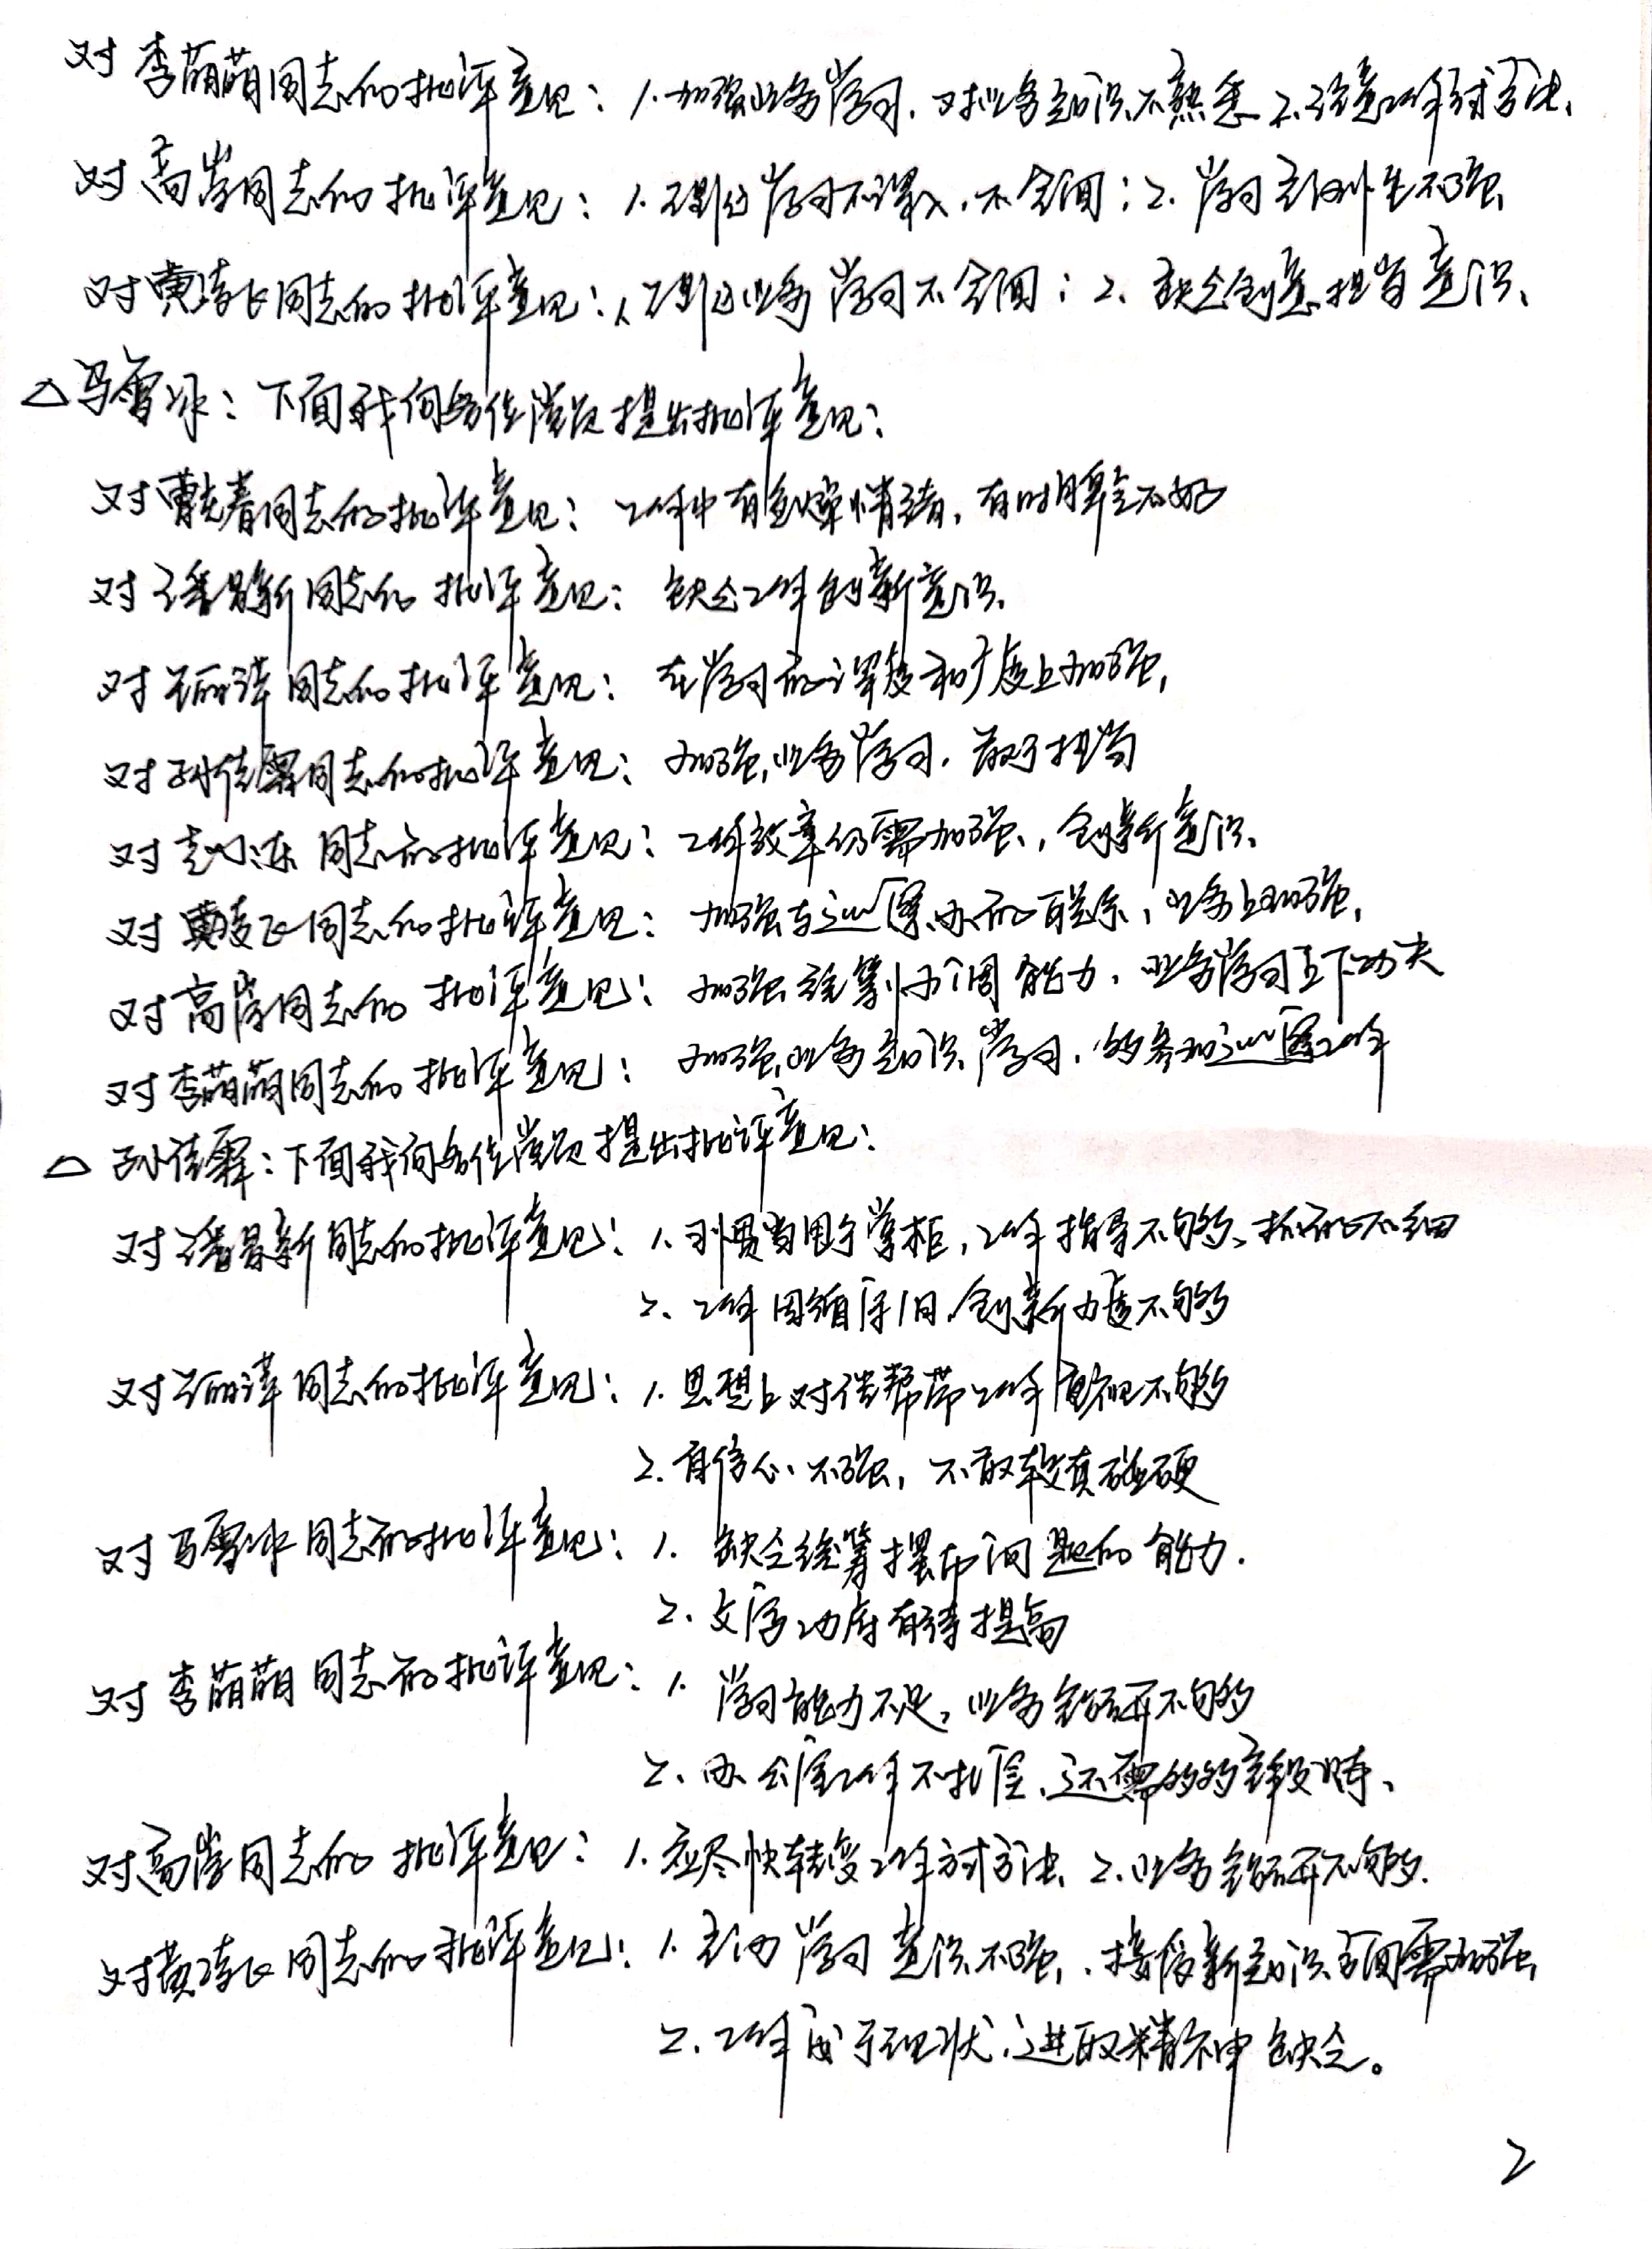 对李萌萌同志的批评意见：1.加强业务学习，对业务知识不熟悉 2.注意工作方式方法、
对高岸同志的批评意见：1.理论学习不深入，不全面；2.学习主动性不强
对黄凌飞同志的批评意见：1.理论业务学习不全面；2.缺乏创意担当意识、
△马雪冰：下面我向各位党员提出批评意见：
对曹克春同志的批评意见：工作中有急燥情绪，有时脾气不好
对潘景新同志的批评意见：缺乏工作创新意识
对 同志的批评意见：在学习的深度和广度上加强，
对孙佳霖同志的批评意见：加强业务学习，敢于担当
对 同志的批评意见：工作效率仍需加强，创新意识
对黄凌飞同志的批评意见：加强与巡察办的联系，业务上加强，
对高岸同志的批评意见：加强统筹协调能力，业务学习上下功夫
对李萌萌同志的批评意见：加强业务知识学习，多参加巡察工作
△孙佳霖：下面我向各位党员提出批评意见：
对潘景新同志的批评意见：1.习惯当甩手掌柜，工作指导不够、抓的不细
2.工作因循守旧，创新力度不够
对 同志的批评意见：1.思想上对传帮带工作重视不够
2.自信心不强，不敢较真碰硬
对马雪冰同志的批评意见：1.缺乏统筹摆布问题的能力.
2.文字功底有待提高
对李萌萌同志的批评意见：1.学习能力不足，业务钻研不够
2.办公室工作不扎实、还需多多锻炼、
对高岸同志的批评意见：1.应尽快转变工作方式方法、2.业务钻研不够.
对黄凌飞同志的批评意见：1.主动学习意识不强，接受新知识方面需加强
2.工作安于现状，进取精神缺乏。
2